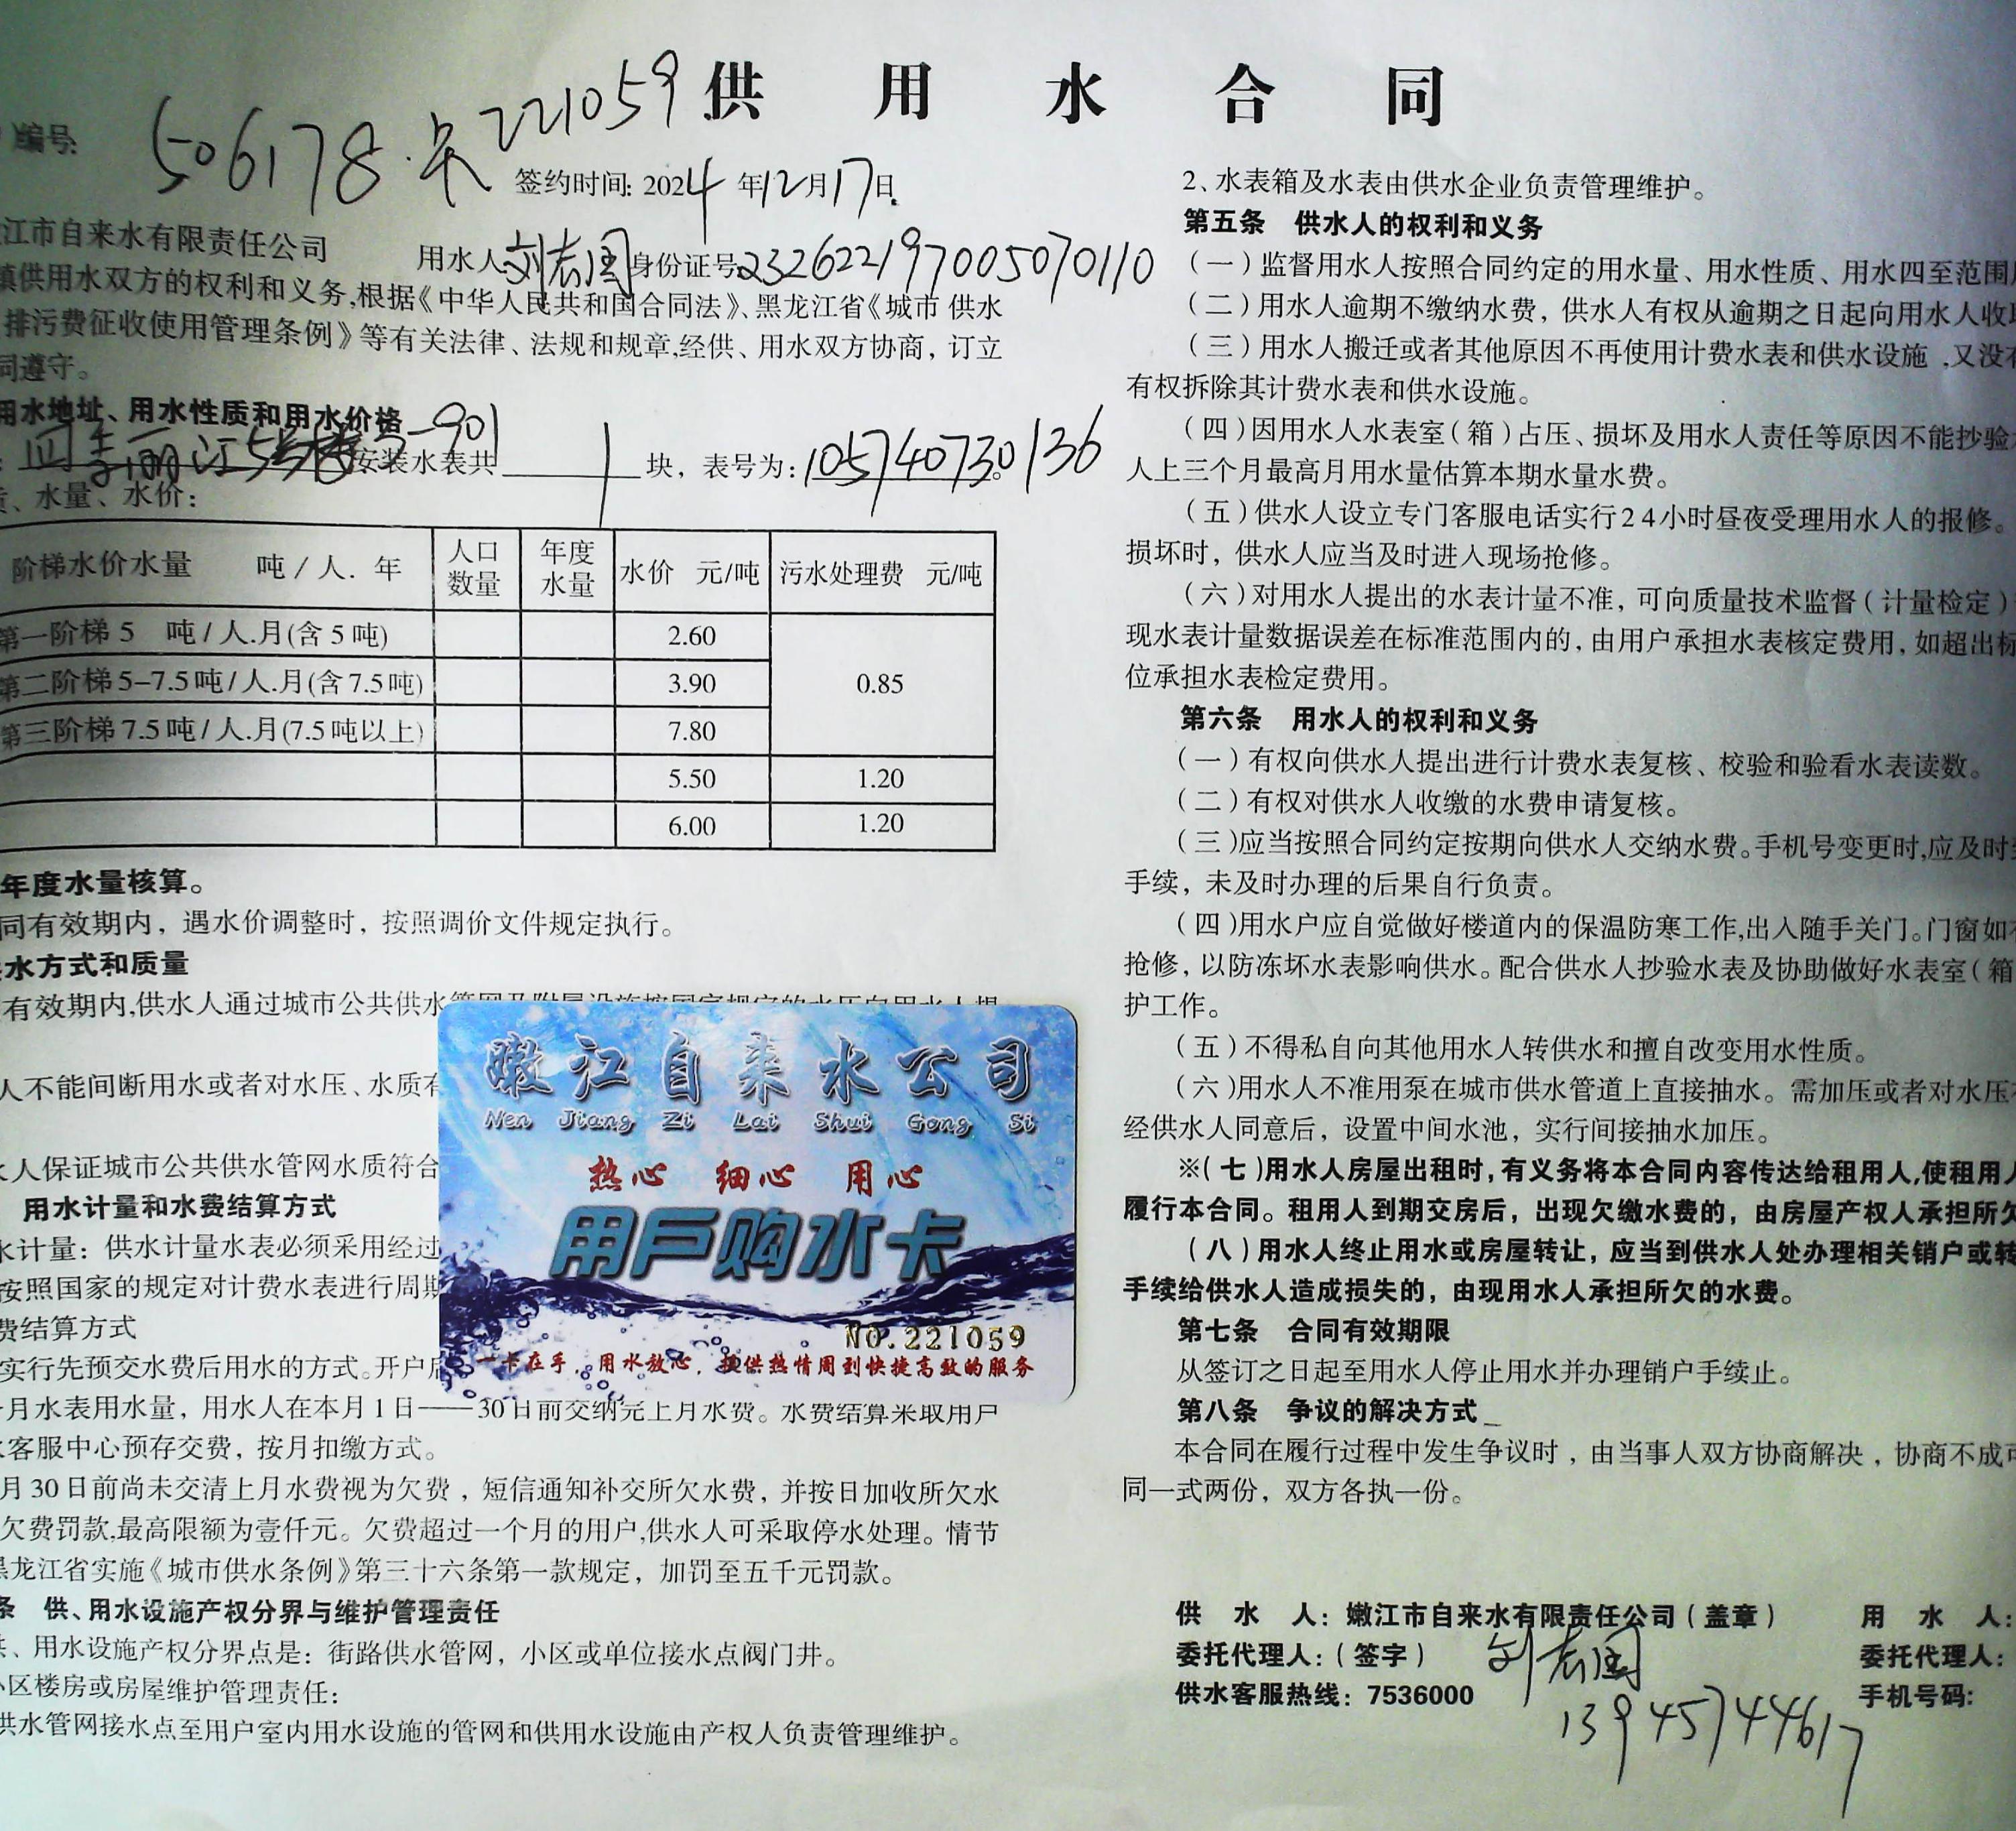 供用水合同
编号:
506178.卡221059
签约时间: 2024年12月17日
江市自来水有限责任公司
用水人 刘志国 身份证号 232622197005070110
供用水双方的权利和义务,根据《中华人民共和国合同法》、黑龙江省《城市 供水
排污费征收使用管理条例》等有关法律、法规和规章,经供、用水双方协商,订立
同遵守。
用水地址、用水性质和用水价格
四季丽江5号楼3-901 安装水表共 1 块,表号为: 105740730136
、水量、水价:
阶梯水价水量 吨/人. 年 人口数量 年度水量 水价 元/吨 污水处理费 元/吨
第一阶梯 5 吨/人.月(含 5 吨) 2.60
第二阶梯 5-7.5吨/人.月(含 7.5吨) 3.90 0.85
第三阶梯 7.5吨/人.月(7.5吨以上) 7.80
5.50 1.20
6.00 1.20
年度水量核算。
同有效期内,遇水价调整时,按照调价文件规定执行。
水方式和质量
有效期内,供水人通过城市公共供水管网及附属设施按国家规定的水压向用水人提
人不能间断用水或者对水压、水质有
人保证城市公共供水管网水质符合
用水计量和水费结算方式
水计量:供水计量水表必须采用经过
按照国家的规定对计费水表进行周期
费结算方式
实行先预交水费后用水的方式。开户后
月水表用水量,用水人在本月1日——30日前交纳完上月水费。水费结算采取用户
客服中心预存交费,按月扣缴方式。
月30日前尚未交清上月水费视为欠费,短信通知补交所欠水费,并按日加收所欠水
欠费罚款,最高限额为壹仟元。欠费超过一个月的用户,供水人可采取停水处理。情节
黑龙江省实施《城市供水条例》第三十六条第一款规定,加罚至五千元罚款。
条 供、用水设施产权分界与维护管理责任
、用水设施产权分界点是:街路供水管网,小区或单位接水点阀门井。
小区楼房或房屋维护管理责任:
供水管网接水点至用户室内用水设施的管网和供用水设施由产权人负责管理维护。
嫩江自来水公司
Nen Jiang Zi Lai Shui Gong Si
热心 细心 用心
用户购水卡
NO.221059
一卡在手,用水放心,提供热情周到快捷高效的服务
2、水表箱及水表由供水企业负责管理维护。
第五条 供水人的权利和义务
(一)监督用水人按照合同约定的用水量、用水性质、用水四至范围
(二)用水人逾期不缴纳水费,供水人有权从逾期之日起向用水人收
(三)用水人搬迁或者其他原因不再使用计费水表和供水设施,又没
有权拆除其计费水表和供水设施。
(四)因用水人水表室(箱)占压、损坏及用水人责任等原因不能抄验
人上三个月最高月用水量估算本期水量水费。
(五)供水人设立专门客服电话实行24小时昼夜受理用水人的报修。
损坏时,供水人应当及时进入现场抢修。
(六)对用水人提出的水表计量不准,可向质量技术监督(计量检定)
现水表计量数据误差在标准范围内的,由用户承担水表核定费用,如超出标
位承担水表检定费用。
第六条 用水人的权利和义务
(一)有权向供水人提出进行计费水表复核、校验和验看水表读数。
(二)有权对供水人收缴的水费申请复核。
(三)应当按照合同约定按期向供水人交纳水费。手机号变更时,应及时
手续,未及时办理的后果自行负责。
(四)用水户应自觉做好楼道内的保温防寒工作,出入随手关门。门窗如
抢修,以防冻坏水表影响供水。配合供水人抄验水表及协助做好水表室(箱
护工作。
(五)不得私自向其他用水人转供水和擅自改变用水性质。
(六)用水人不准用泵在城市供水管道上直接抽水。需加压或者对水压
经供水人同意后,设置中间水池,实行间接抽水加压。
※(七)用水人房屋出租时,有义务将本合同内容传达给租用人,使租用人
履行本合同。租用人到期交房后,出现欠缴水费的,由房屋产权人承担所欠
(八)用水人终止用水或房屋转让,应当到供水人处办理相关销户或转
手续给供水人造成损失的,由现用水人承担所欠的水费。
第七条 合同有效期限
从签订之日起至用水人停止用水并办理销户手续止。
第八条 争议的解决方式
本合同在履行过程中发生争议时,由当事人双方协商解决,协商不成可
同一式两份,双方各执一份。
供 水 人:嫩江市自来水有限责任公司(盖章) 用 水 人:
委托代理人:(签字) 刘志国 委托代理人:
供水客服热线:7536000 手机号码:
13945744617